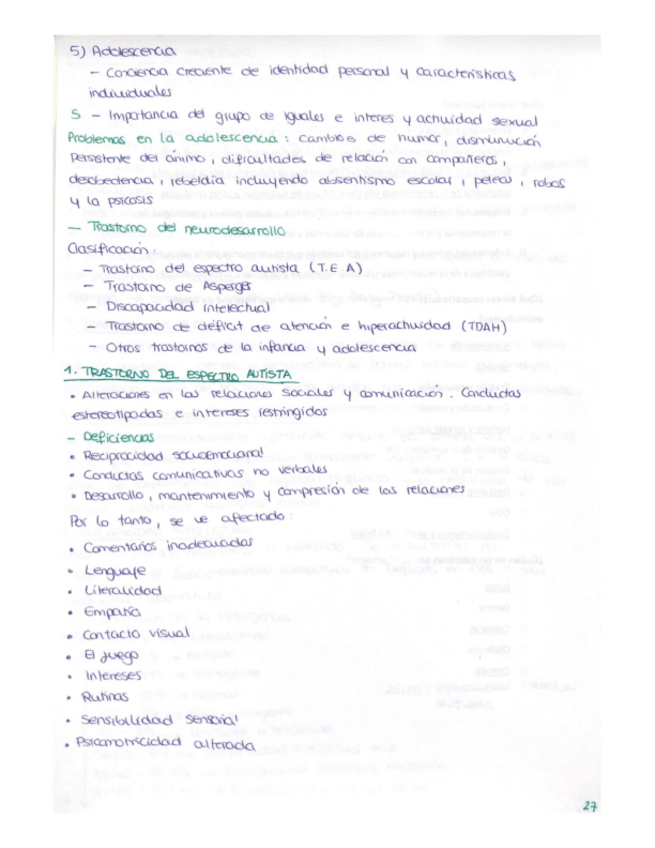 5) Adolescencia
- Conciencia creciente de identidad personal y características
individuales
S - Importancia del grupo de iguales e interes y actividad sexual
Problemas en la adolescencia : cambios de humor, disminución
persistente del ánimo, dificultades de relación con compañeros,
desobediencia, rebeldía incluyendo absentismo escolar, peleas, robos
y la psicosis
- Trastorno del neurodesarrollo
Clasificación:
- Trastorno del espectro autista (T.E.A)
- Trastorno de Asperger
- Discapacidad Intelectual
- Trastorno de déficit de atención e hiperactividad (TDAH)
- Otros trastornos de la infancia y adolescencia
1. TRASTORNO DEL ESPECTRO AUTISTA
• Alteraciones en las relaciones sociales y comunicación. Conductas
estereotipadas e intereses restringidos
- Deficiencias
• Reciprocidad socioemocional
• Conductas comunicativas no verbales
• Desarrollo, mantenimiento y compresión de las relaciones
Por lo tanto, se ve afectado:
• Comentarios inadecuados
• Lenguaje
• Literalidad
• Empatía
• Contacto visual
• El juego
• Intereses
• Rutinas
• Sensibilidad sensorial
• Psicomotricidad alterada
27